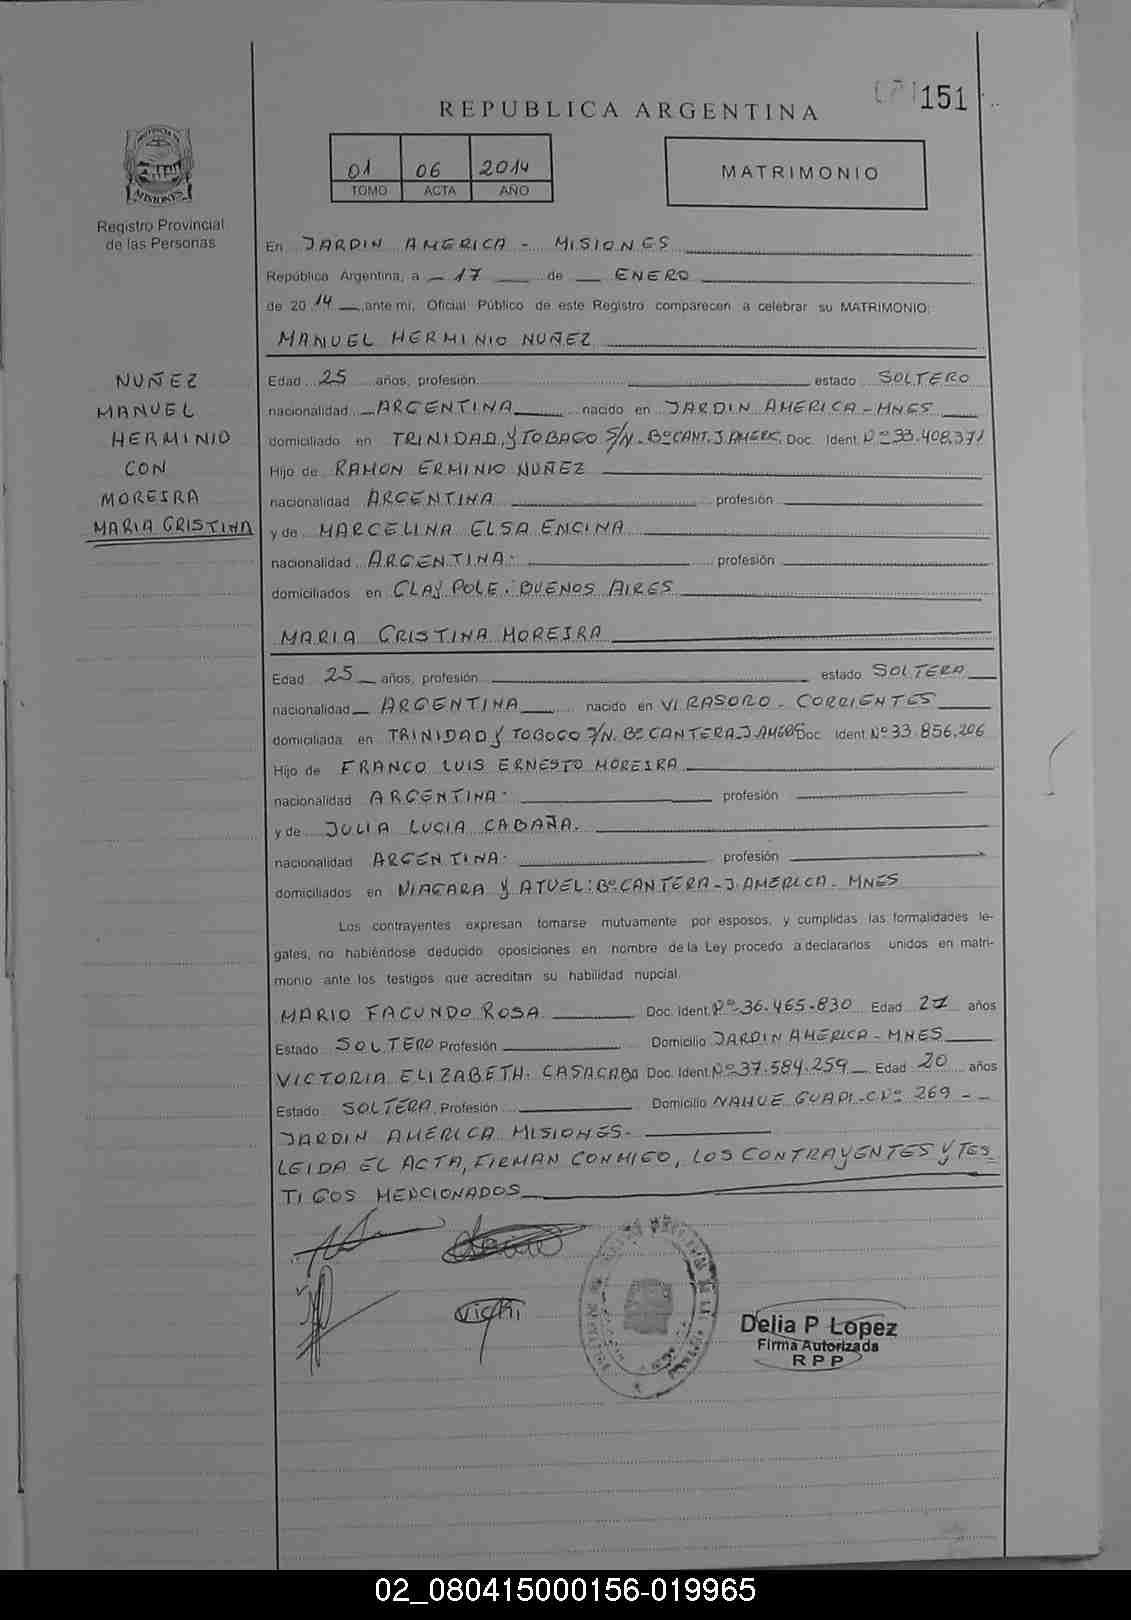 151
REPUBLICA ARGENTINA
01 06 2014
TOMO ACTA AÑO
MATRIMONIO
MISIONES
Registro Provincial
de las Personas
En JARDIN AMERICA - MISIONES
República Argentina, a 17 de ENERO
de 2014 ante mi, Oficial Público de este Registro comparecen a celebrar su MATRIMONIO:
MANUEL HERMINIO NUÑEZ
NUÑEZ
MANUEL
HERMINIO
CON
MOREIRA
MARIA CRISTINA
Edad 25 años, profesión estado SOLTERO
nacionalidad ARGENTINA nacido en JARDIN AMERICA - MNES
domiciliado en TRINIDAD Y TOBAGO S/N. Bº CANT. J. AMERC. Doc. Ident. Nº 33.408.371
Hijo de RAMON ERMINIO NUÑEZ
nacionalidad ARGENTINA profesión
y de MARCELINA ELSA ENCINA
nacionalidad ARGENTINA. profesión
domiciliados en CLAY POLE. BUENOS AIRES
MARIA CRISTINA MOREIRA
Edad 25 años, profesión estado SOLTERA
nacionalidad ARGENTINA nacido en VIRASORO - CORRIENTES
domiciliada en TRINIDAD Y TOBOGO S/N. Bº CANTERA. J. Doc. Ident. Nº 33.856.206
Hijo de FRANCO LUIS ERNESTO MOREIRA
nacionalidad ARGENTINA. profesión
y de JULIA LUCIA CABAÑA.
nacionalidad ARGENTINA. profesión
domiciliados en NIAGARA Y ATUEL: Bº CANTERA - J. AMERICA - MNES
Los contrayentes expresan tomarse mutuamente por esposos, y cumplidas las formalidades le-
gales, no habiéndose deducido oposiciones en nombre de la Ley procedo a declararlos unidos en matri-
monio ante los testigos que acreditan su habilidad nupcial.
MARIO FACUNDO ROSA Doc. Ident. Nº 36.465.830 Edad 21 años
Estado SOLTERO Profesión Domicilio JARDIN AMERICA - MNES
VICTORIA ELIZABETH. Doc. Ident. Nº 37.584.259 Edad 20 años
Estado SOLTERA, Profesión Domicilio NAHUE GUAPI - C. Nº 269 - -
JARDIN AMERICA MISIONES.
LEIDA EL ACTA, FIRMAN CONMIGO, LOS CONTRAYENTES Y TES
TIGOS MENCIONADOS
Vicky
Delia P Lopez
Firma Autorizada
R P P
02_080415000156-019965